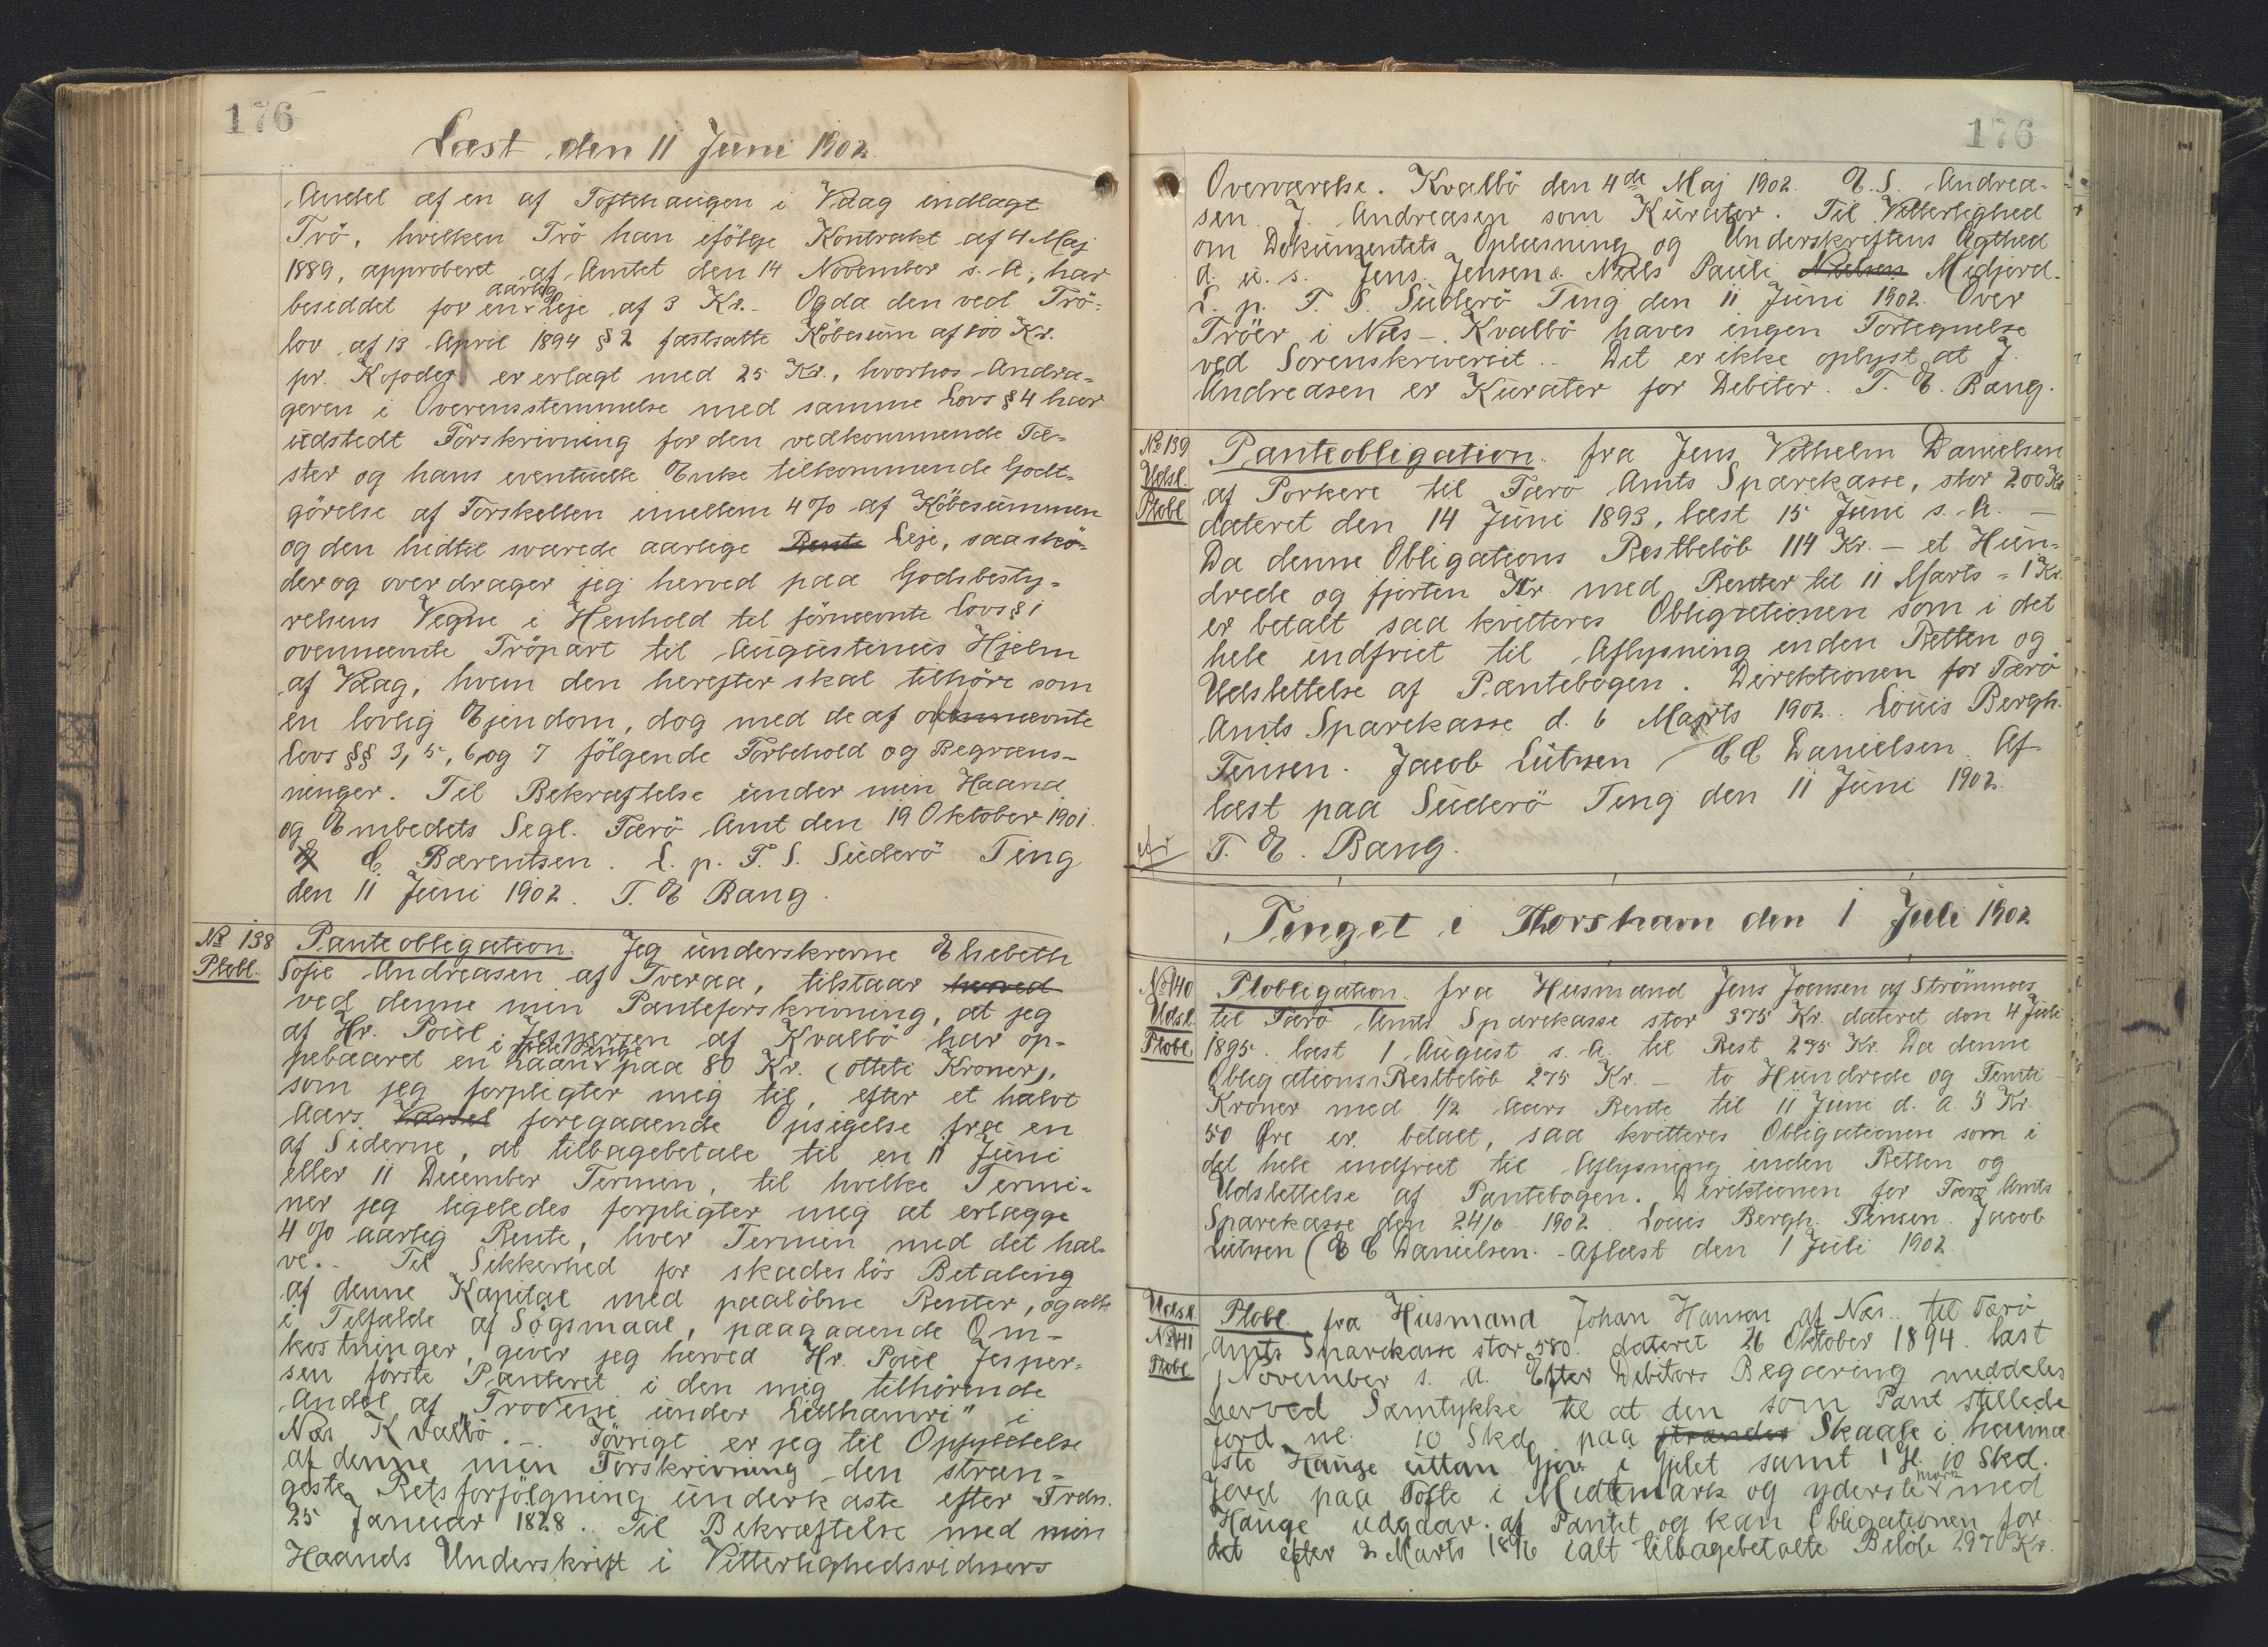 176
Læst den 11 Juni 1902.
Andel af en af Toftehaugen i Vaag indlagt
Trö, hvilken Trö han ifölge Kontrakt af 4 Maj
1889, approberet af Amtet den 14 November s. A., har
aarlig
besiddet for en Leje af 3 Kr. - Og da den ved Trö-
lov af 13 April 1894 § 2 fastsatte Köbesum af 100 Kr.
pr. er erlagt med 25 Kr., hvorhos Andra-
geren i Overensstemmelse med samme Lovs § 4 har
udstedt Forskrivning for den vedkommende Fæ-
ster og hans eventuelle Enke tilkommende Godt-
görelse af Forskellen imellem 4 % af Köbesummen
og den hidtil svarede aarlige Rente Leje, saa skö-
der og overdrager jeg herved paa Godsbesty-
relsens Vegne i Henhold til förnævnte Lovs § 1
ovennævnte Tröpart til Augustinus Hjelm
af Vaag, hvem den herefter skal tilhöre som
en lovlig Ejendom, dog med de af oftnævnte
Lovs §§ 3, 5, 6, og 7 fölgende Forbehold og Begræns-
ninger. Til Bekræftelse under min Haand
og Embedets Segl. Færö Amt den 19 Oktober 1901.
C. Bærentsen. L. p. F. S. Suderö Ting
den 11 Juni 1902. T. E Bang.
No 138
Ptobl.
Panteobligation. Jeg underskrevne Elsebeth
Sofie Andreasen af Tveraa, tilstaar herved
ved denne min Panteforskrivning, at jeg
af Hr. Poul Jespersen af Kvalbö har op-
pebaaret en Laan paa 80 Kr. (otteti Kroner),
som jeg forpligter mig til, efter et halvt
Aars Varsel foregaaende Opsigelse fra en
af Siderne, at tilbagebetale til en 11 Juni
eller 11 December Termin, til hvilke Termi-
ner jeg ligeledes forpligter mig at erlægge
4 % aarlig Rente, hver Termin med det hal-
ve. - Til Sikkerhed for skadeslös Betaling
af denne Kapital med paalöbne Renter, og alle
i Tilfælde af Sögsmaal, paagaaende Om-
kostninger, giver jeg herved Hr. Poul Jesper-
sen förste Panteret i den mig tilhörende
Andel af Tröerne under "Lidhamri" i
Næs Kvalbö. - Iövrigt er jeg til Opfyldelse
af denne min Forskrivning den stren-
geste Retsforfölgning underkaste efter Frdn.
25 Januar 1828. Til Bekræftelse med min
Haands Underskrift i Vitterlighedsvidners
176
Overværelse. Kvalbö den 4de Maj 1902. E. S. Andrea-
sen. J. Andreasen som Kurator. Til Vitterlighed
om Dokumentets Oplæsning og Underskriftens Ægthed
d. u. s. Jens Jensen. Niels Pauli Nielsen Midjord.
L. p. F. S. Suderö Ting den 11 Juni 1902. Over
Tröer i Næs - Kvalbö haves ingen Fortegnelse
ved Sorenskriveriet. - Det er ikke oplyst at J.
Andreasen er Kurator for Debitor. T. E. Bang.
No 139
Udsl.
Ptobl.
Panteobligation fra Jens Vilhelm Danielsen
af Porkere til Færö Amts Sparekasse, stor 200 Kr
dateret den 14 Juni 1893, læst 15 Juni s. A. -
Da denne Obligations Restbelöb 114 Kr. - et Hun-
drede og fjorten Kr. med Renter til 11 Marts = 1 Kr.
er betalt saa kvitteres Obligationen som i det
hele indfriet til Aflysning inden Retten og
Udslettelse af Pantebogen. Direktionen for Færö
Amts Sparekasse d. 6 Marts 1902. Louis Bergh.
Tensen. Jacob Lützen / C C Danielsen. Af-
læst paa Suderö Ting den 11 Juni 1902.
T. E. Bang.
Tinget i Thorshavn den 1 Juli 1902
No 140
Udsl.
Ptobl.
Ptobligation. fra Husmand Jens Joensen af Strömnæs
til Færö Amts Sparekasse stor 375 Kr. dateret den 4 Juli
1895. læst 1 August s. A. til Rest 275 Kr. Da denne
Obligations Restbelöb 275 Kr. - to Hundrede og Femti
Kroner med 1/2 Aars Rente til 11 Juni d. A. 5 Kr.
50 Øre er betalt, saa kvitteres Obligationen som i
det hele indfriet til Aflysning inden Retten og
Udslettelse af Pantebogen. Direktionen for Færö Amts
Sparekasse den 24/6 1902. Louis Bergh. Tensen. Jacob
Lützen ( C C Danielsen. - Aflæst den 1 Juli 1902
Udsl.
No 141
Ptobl.
Ptobl. fra Husmand Johan Hansen af Næs. til Færö
Amts Sparekasse stor 580. dateret 26 Oktober 1894. læst
November s. A. Efter Debitors Begæring meddeles
herved Samtykke til at den som Pant stillede
Jord nl. 10 Skd. paa Skaale i heima
ste Hauge uttan Gjov i Gjelet samt 1 Gl. 10 Skd.
mark
Jord paa Tofte i Midtmark og yderste med
Hauge udgaar af Pantet og kan Obligationen for
det efter 2 Marts 1896 ialt tilbagebetalte Belöb 297 Kr.